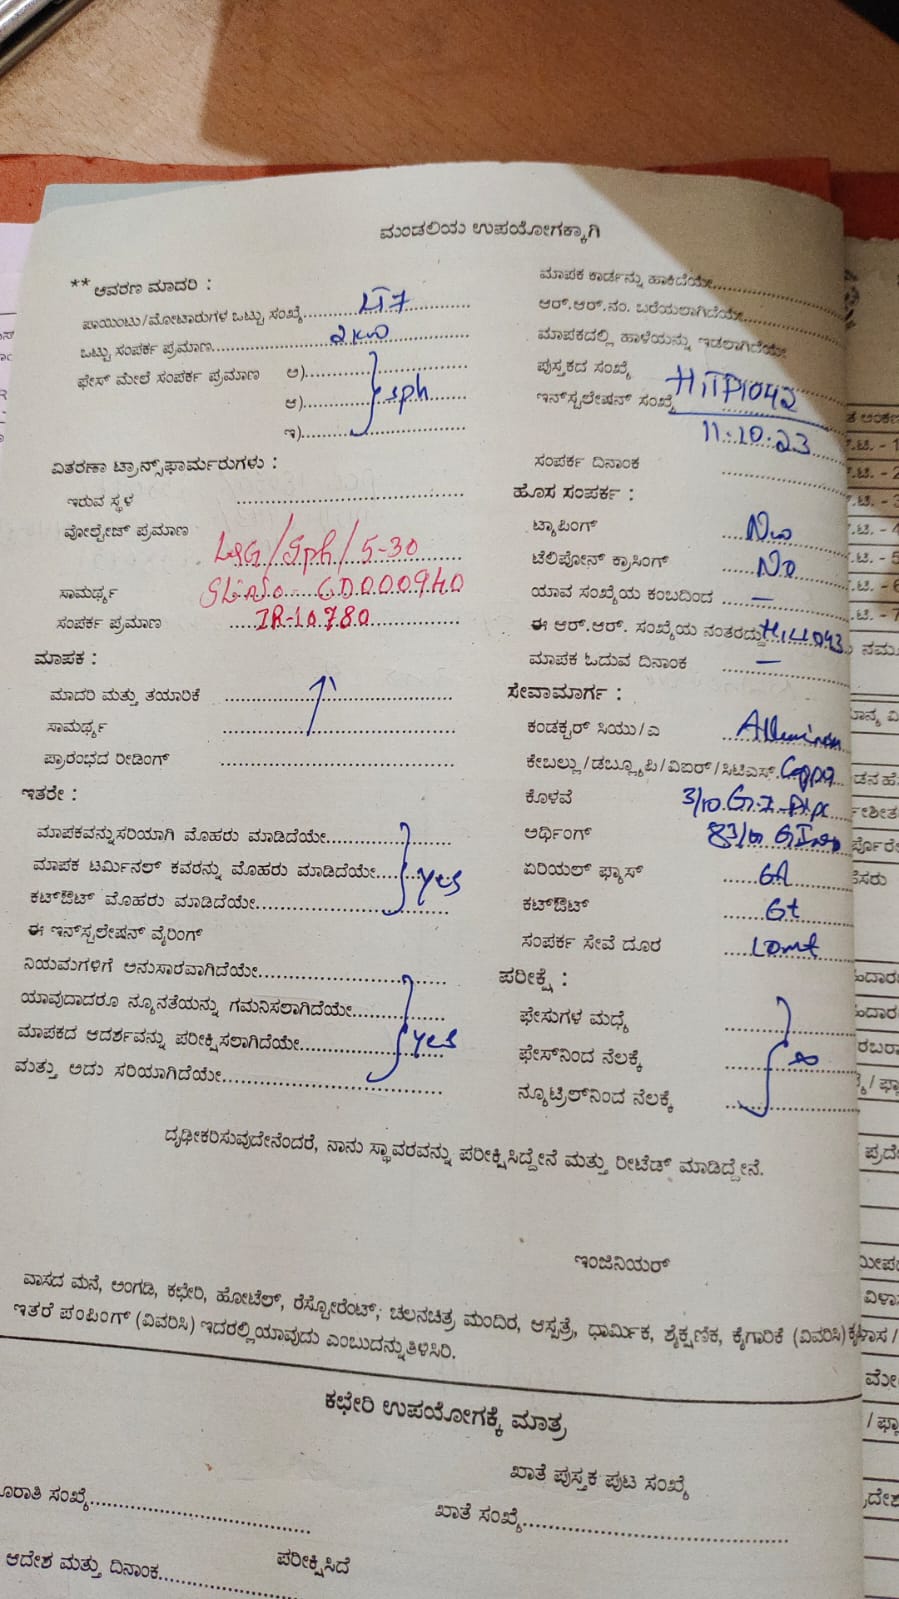 ಮಂಡಲಿಯ ಉಪಯೋಗಕ್ಕಾಗಿ
** ಆವರಣ ಮಾದರಿ :
ಪಾಯಿಂಟು/ಮೋಟಾರುಗಳ ಒಟ್ಟು ಸಂಖ್ಯೆ LT7
ಒಟ್ಟು ಸಂಪರ್ಕ ಪ್ರಮಾಣ 2kw
ಫೇಸ್ ಮೇಲೆ ಸಂಪರ್ಕ ಪ್ರಮಾಣ ಅ)
ಆ) sph
ಇ)
ವಿತರಣಾ ಟ್ರಾನ್ಸ್‌ಫಾರ್ಮರುಗಳು :
ಇರುವ ಸ್ಥಳ
ವೋಲ್ಟೇಜ್ ಪ್ರಮಾಣ
L&G/Sph/5-30
ಸಾಮರ್ಥ್ಯ SL.No. CD000940
ಸಂಪರ್ಕ ಪ್ರಮಾಣ IR-10780
ಮಾಪಕ :
ಮಾದರಿ ಮತ್ತು ತಯಾರಿಕೆ
ಸಾಮರ್ಥ್ಯ
ಪ್ರಾರಂಭದ ರೀಡಿಂಗ್
ಇತರೇ :
ಮಾಪಕವನ್ನು ಸರಿಯಾಗಿ ಮೊಹರು ಮಾಡಿದೆಯೇ
ಮಾಪಕ ಟರ್ಮಿನಲ್ ಕವರನ್ನು ಮೊಹರು ಮಾಡಿದೆಯೇ yes
ಕಟ್‌ಔಟ್ ಮೊಹರು ಮಾಡಿದೆಯೇ
ಈ ಇನ್‌ಸ್ಟಲೇಷನ್ ವೈರಿಂಗ್
ನಿಯಮಗಳಿಗೆ ಅನುಸಾರವಾಗಿದೆಯೇ
ಯಾವುದಾದರೂ ನ್ಯೂನತೆಯನ್ನು ಗಮನಿಸಲಾಗಿದೆಯೇ
ಮಾಪಕದ ಆದರ್ಶವನ್ನು ಪರೀಕ್ಷಿಸಲಾಗಿದೆಯೇ yes
ಮತ್ತು ಅದು ಸರಿಯಾಗಿದೆಯೇ
ಮಾಪಕ ಕಾರ್ಡನ್ನು ಹಾಕಿದೆಯೇ
ಆರ್.ಆರ್.ನಂ. ಬರೆಯಲಾಗಿದೆಯೇ
ಮಾಪಕದಲ್ಲಿ ಹಾಳೆಯನ್ನು ಇಡಲಾಗಿದೆಯೇ
ಪುಸ್ತಕದ ಸಂಖ್ಯೆ
ಇನ್‌ಸ್ಟಲೇಷನ್ ಸಂಖ್ಯೆ HTTP1042
11.10.23
ಸಂಪರ್ಕ ದಿನಾಂಕ
ಹೊಸ ಸಂಪರ್ಕ :
ಟ್ಯಾಪಿಂಗ್ No
ಟೆಲಿಫೋನ್ ಕ್ರಾಸಿಂಗ್ No
ಯಾವ ಸಂಖ್ಯೆಯ ಕಂಬದಿಂದ –
ಈ ಆರ್.ಆರ್. ಸಂಖ್ಯೆಯ ನಂತರದ್ದು
ಮಾಪಕ ಓದುವ ದಿನಾಂಕ –
ಸೇವಾಮಾರ್ಗ :
ಕಂಡಕ್ಟರ್ ಸಿಯು/ಎ
ಕೇಬಲ್ಲು/ಡಬ್ಲ್ಯೂಪಿ/ವಿಐರ್/ಸಿಟಿಎಸ್
ಕೊಳವೆ 3/10 G.I
ಅರ್ಥಿಂಗ್
ಏರಿಯಲ್ ಫ್ಯೂಸ್
ಕಟ್‌ಔಟ್
ಸಂಪರ್ಕ ಸೇವೆ ದೂರ 10mt
ಪರೀಕ್ಷೆ :
ಫೇಸುಗಳ ಮಧ್ಯೆ
ಫೇಸ್‌ನಿಂದ ನೆಲಕ್ಕೆ ∞
ನ್ಯೂಟ್ರಿಲ್‌ನಿಂದ ನೆಲಕ್ಕೆ
ದೃಢೀಕರಿಸುವುದೇನೆಂದರೆ, ನಾನು ಸ್ಥಾವರವನ್ನು ಪರೀಕ್ಷಿಸಿದ್ದೇನೆ ಮತ್ತು ರೀಟೆಡ್ ಮಾಡಿದ್ದೇನೆ.
ಇಂಜಿನಿಯರ್
ವಾಸದ ಮನೆ, ಅಂಗಡಿ, ಕಛೇರಿ, ಹೋಟೆಲ್, ರೆಸ್ಟೋರೆಂಟ್, ಚಲನಚಿತ್ರ ಮಂದಿರ, ಆಸ್ಪತ್ರೆ, ಧಾರ್ಮಿಕ, ಶೈಕ್ಷಣಿಕ, ಕೈಗಾರಿಕೆ (ವಿವರಿಸಿ)
ಇತರೆ ಪಂಪಿಂಗ್ (ವಿವರಿಸಿ) ಇದರಲ್ಲಿ ಯಾವುದು ಎಂಬುದನ್ನು ತಿಳಿಸಿರಿ.
ಕಛೇರಿ ಉಪಯೋಗಕ್ಕೆ ಮಾತ್ರ
ಖಾತೆ ಪುಸ್ತಕ ಪುಟ ಸಂಖ್ಯೆ
ಖಾತೆ ಸಂಖ್ಯೆ
ಆದೇಶ ಮತ್ತು ದಿನಾಂಕ ಪರೀಕ್ಷಿಸಿದೆ